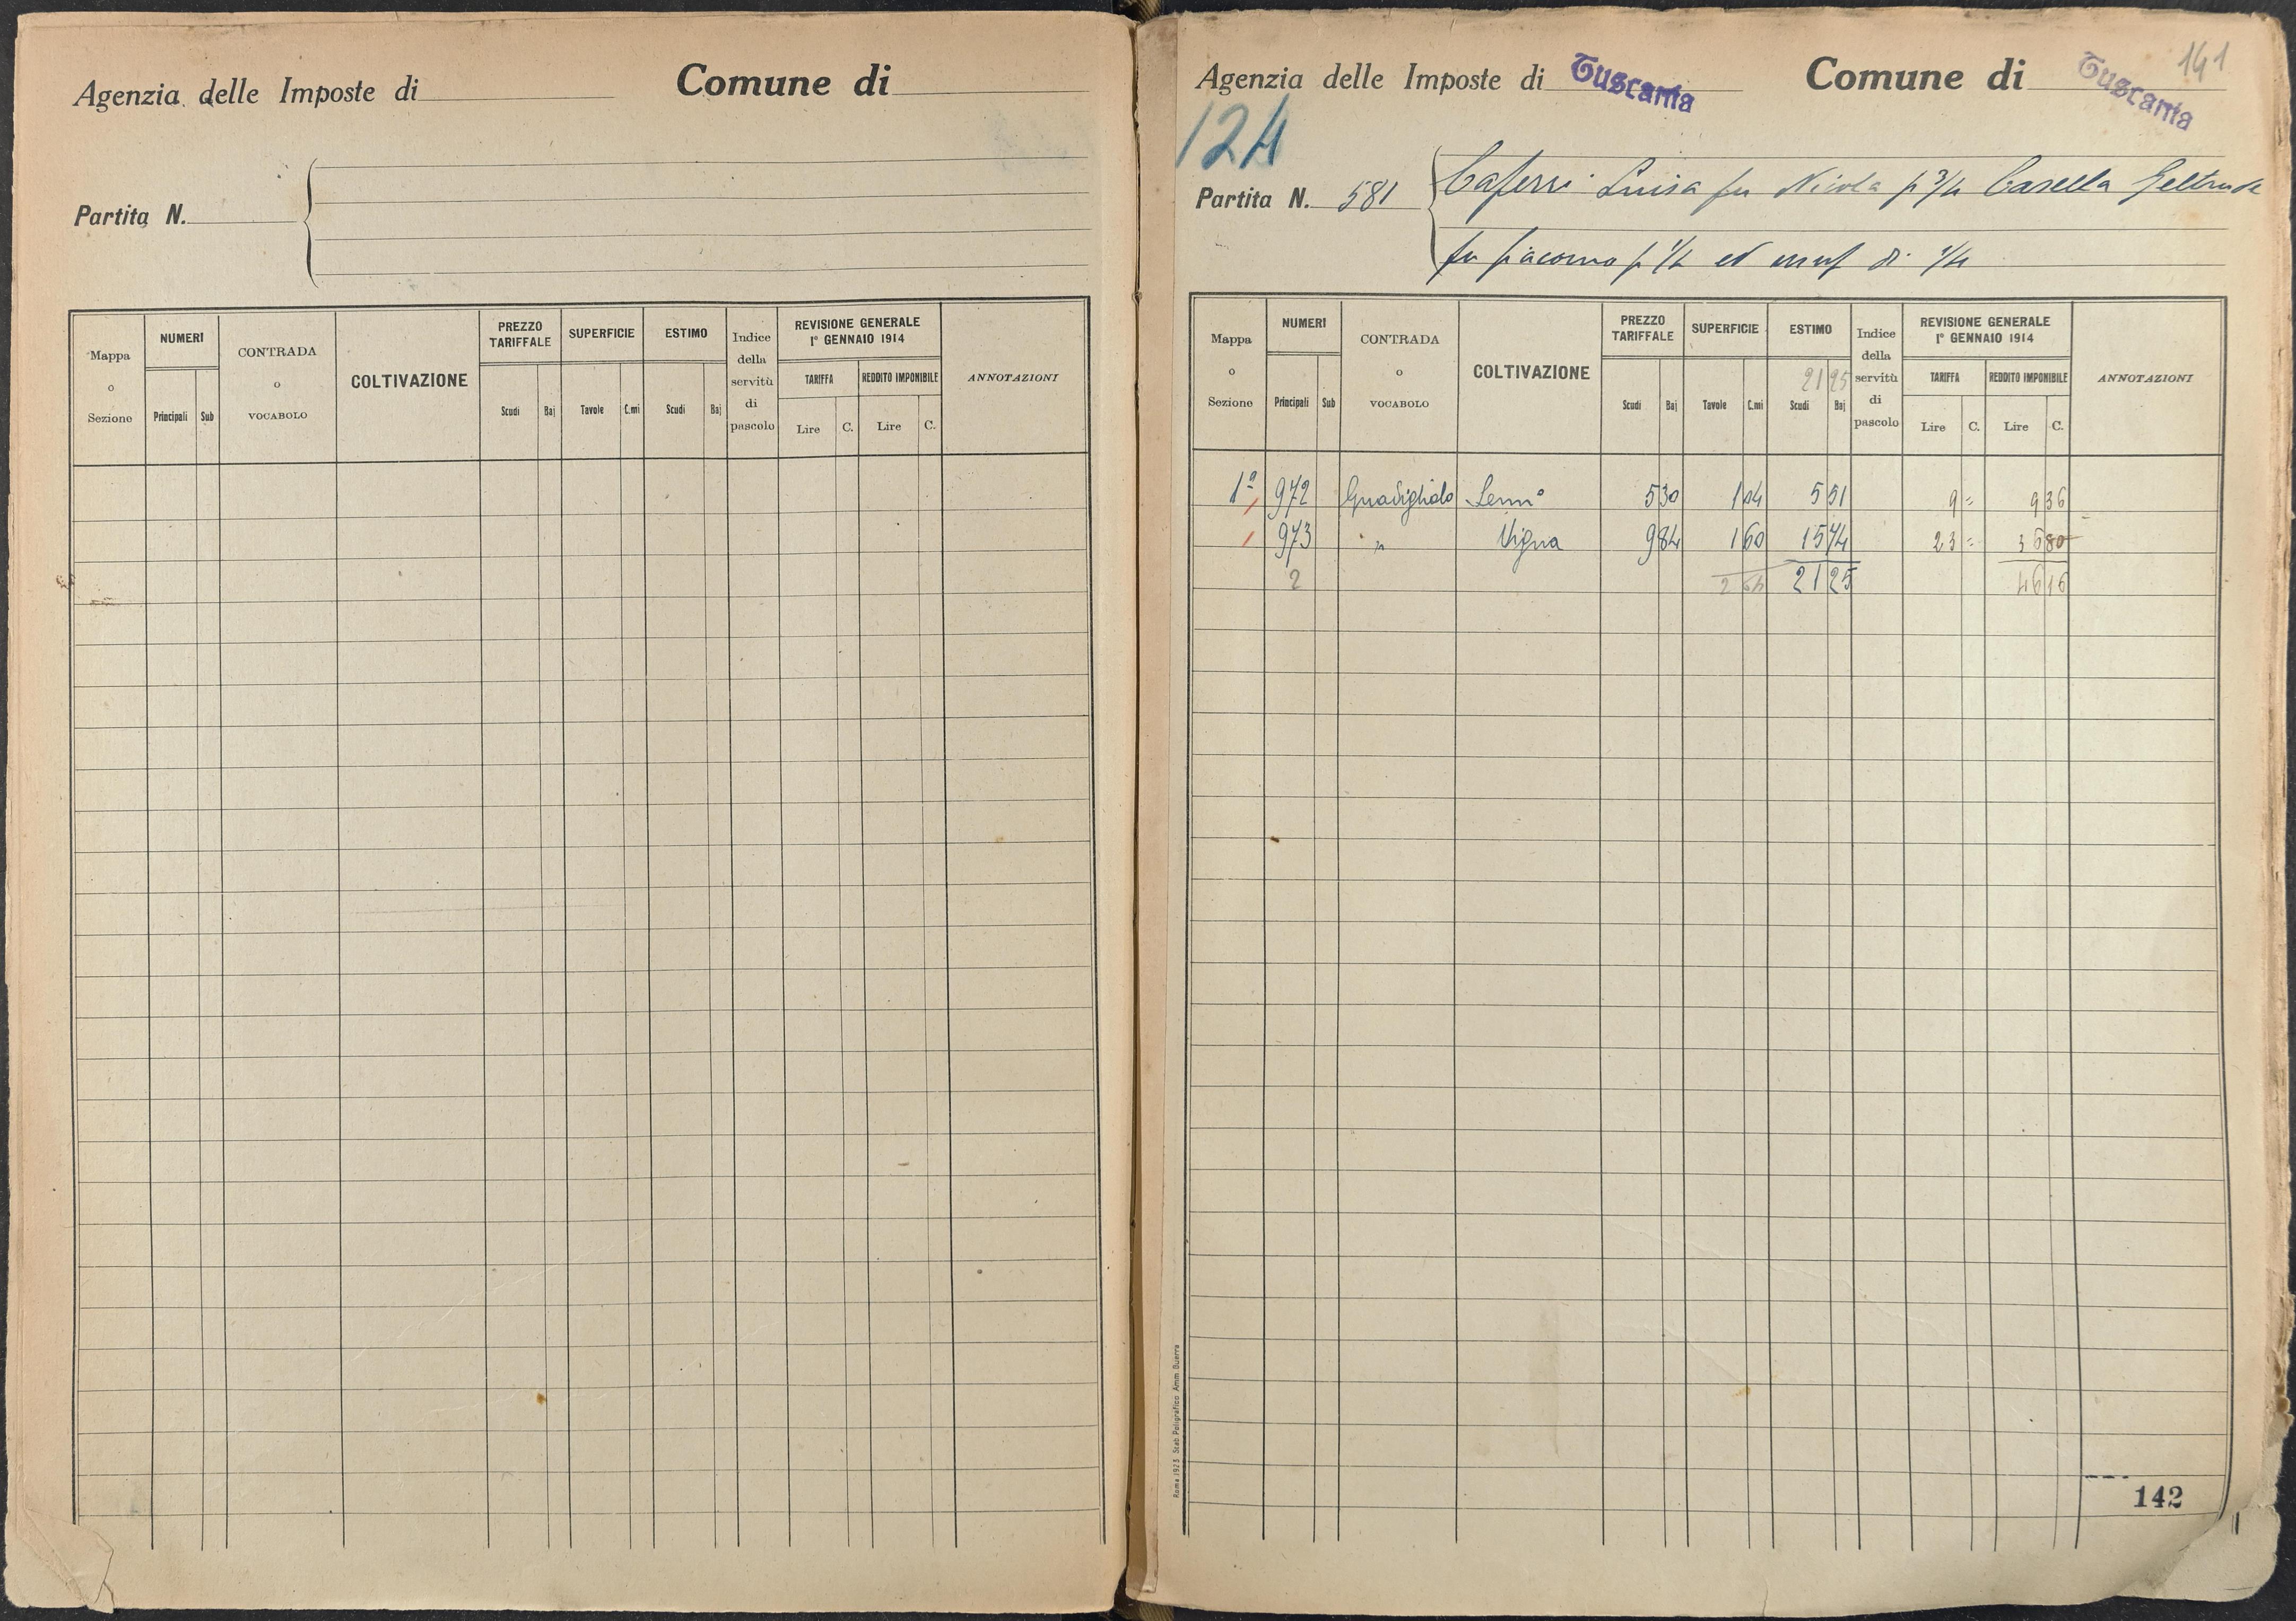 Agenzia delle Imposte di Comune di
Partita N.
Mappa o Sezione NUMERI Principali Sub CONTRADA o VOCABOLO COLTIVAZIONE PREZZO TARIFFALE Scudi Baj SUPERFICIE Tavole C.mi ESTIMO Scudi Baj Indice della servitù di pascolo REVISIONE GENERALE 1° GENNAIO 1914 TARIFFA Lire C. REDDITO IMPONIBILE Lire C. ANNOTAZIONI
141
Agenzia delle Imposte di Tuscania Comune di Tuscania
124
Partita N. 581 Caferri Luisa fu Nicola p 3/4 Casella Geltrude
fu Giacomo p 1/4 ed usuf di 1/4
Mappa o Sezione NUMERI Principali Sub CONTRADA o VOCABOLO COLTIVAZIONE PREZZO TARIFFALE Scudi Baj SUPERFICIE Tavole C.mi ESTIMO 21 25 Scudi Baj Indice della servitù di pascolo REVISIONE GENERALE 1° GENNAIO 1914 TARIFFA Lire C. REDDITO IMPONIBILE Lire C. ANNOTAZIONI
1ª 972 Guadigliolo Semº 5 30 1 04 5 51 9 = 9 36
973 " Vigna 9 84 1 60 15 74 23 = 36 80
2 2 64 21 25 46 16
Roma 1923 Stab Poligrafico Amm Guerra
142